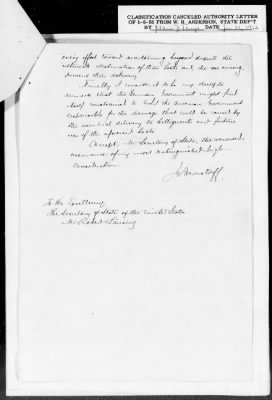 CLASSIFICATION CANCELLED AUTHORITY LETTER
OF 1-8-58 FROM W. H. ANDERSON, STATE DEP'T
BY DATE
every effort toward ascertaining beyond dispute the
ultimate destination of these boats and, the war ,
prevent their delivery.
Finally I consider it to be my duty to
that the German Government might find
itself constrained to hold the American Government
responsible for the damage that will be caused by
the eventual delivery to belligerents and future
use of the aforesaid boats.
Accept, Mr Secretary of State, the renewed
assurance of my most distinguished high
consideration.
J Bernstorff
To His Excellency
The Secretary of State of the United States
Mr Robert Lansing